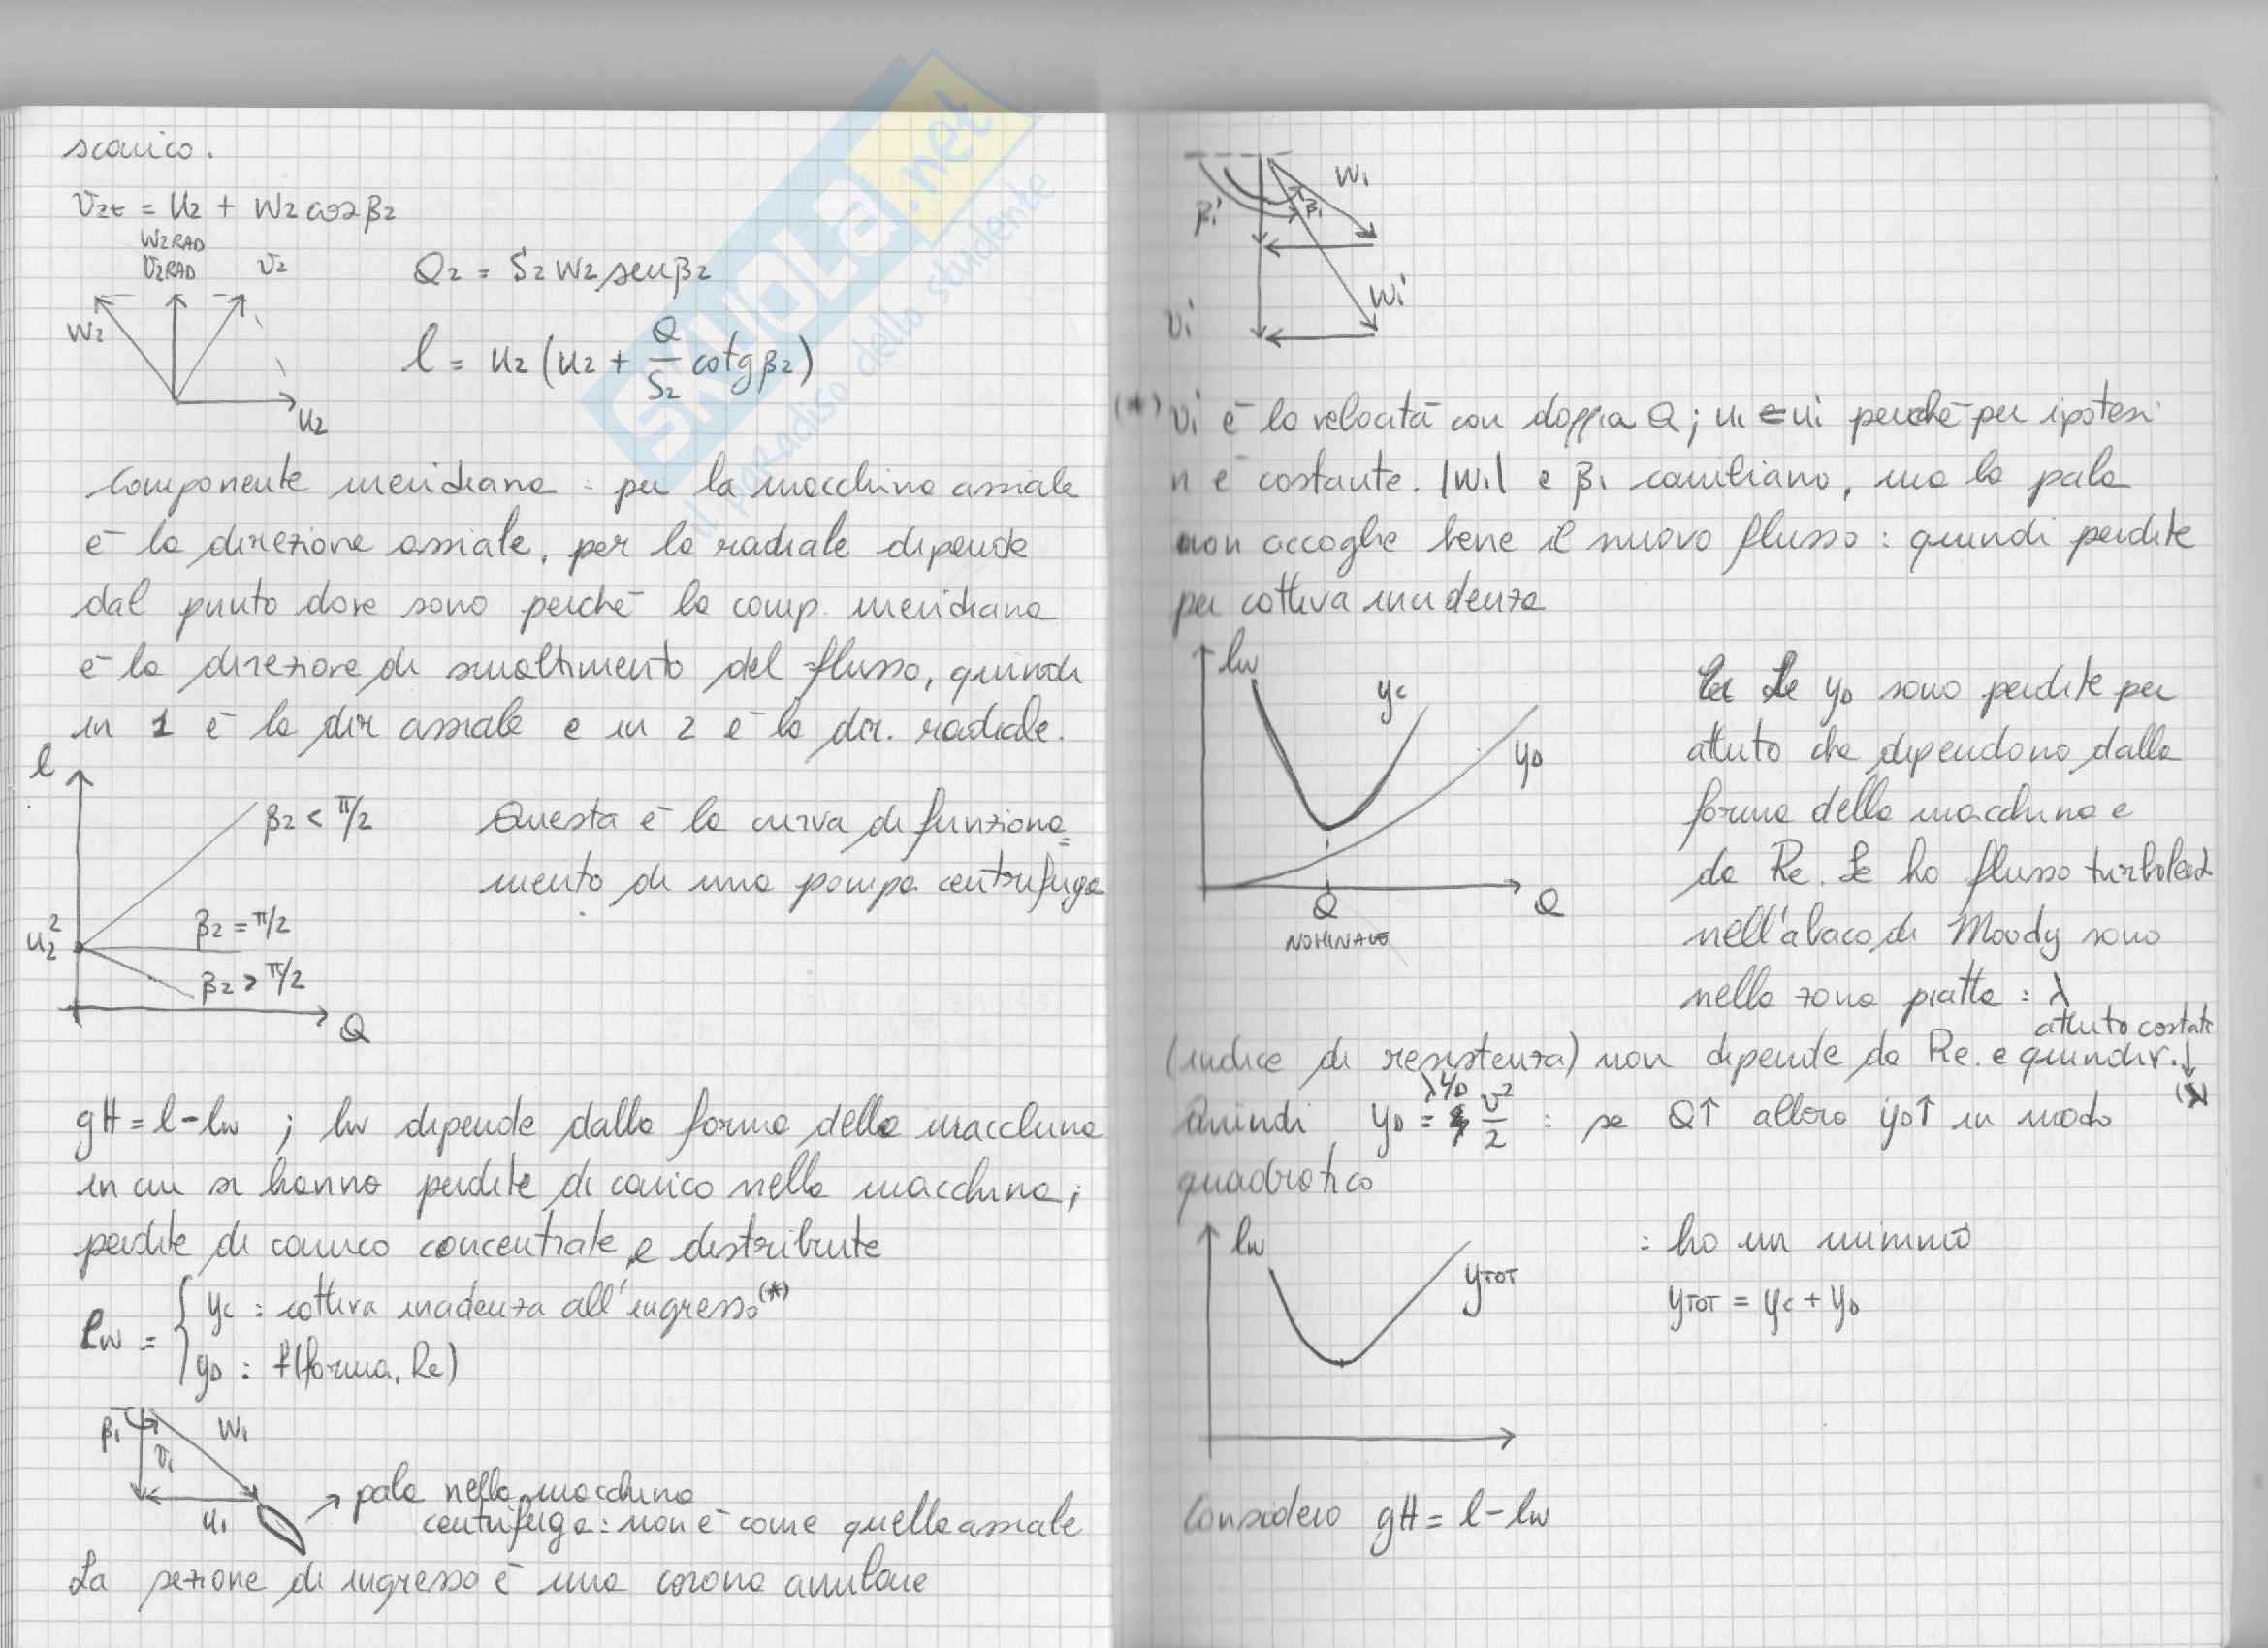 scarico.
v2t = u2 + w2 cosβ2
W2RAD
V2RAD
v2
w2
u2
Q2 = S2 W2 senβ2
l = u2 (u2 + Q/S2 cotgβ2)
Componente meridiana : per la macchina assiale
è la direzione assiale, per la radiale dipende
dal punto dove sono perché la comp. meridiana
è la direzione di smaltimento del flusso, quindi
in 1 è la dir assiale e in 2 è la dir. radiale.
l
β2 < π/2
u2²
β2 = π/2
β2 > π/2
Q
Questa è la curva di funziona=
mento di una pompa centrifuga
gH = l - lw ; lw dipende dalla forma della macchina
in cui si hanno perdite di carico nella macchina ;
perdite di carico concentrate e distribuite
lw =
yc : cattiva incidenza all'ingresso (*)
yD : f(forma, Re)
β1
W1
v1
u1
pala nella macchina
centrifuga : non è come quella assiale
La sezione di ingresso è una corona anulare
W1
β1'
β1
W1'
v1'
(*) v1' è la velocità con doppia Q ; u1 = u1' perché per ipotesi
n è costante. |W1| e β1 cambiano, ma la pala
non accoglie bene il nuovo flusso : quindi perdite
per cattiva incidenza
lw
yc
yD
Q
NOMINALE
Q
Le yD sono perdite per
attrito che dipendono dalla
forma della macchina e
da Re. Se ho flusso turbolent
nell'abaco di Moody sono
nella zona piatta : λ
attrito costante
(indice di resistenza) non dipende da Re. e quindi v. ↓
(λ)
Quindi yD = v²/2 : se Q↑ allora yD↑ in modo
quadratico
lw
yTOT
: ho un minimo
yTOT = yc + yD
Considero gH = l - lw
SKUOLA.net
il paradiso dello studente